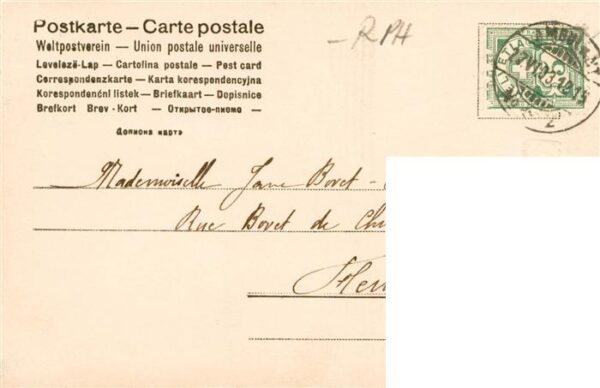 Postkarte — Carte postale
Weltpostverein — Union postale universelle
Levelezö-Lap — Cartolina postale — Post card
Correspondenzkarte — Karta korespondencyjna
Korespondenční listek — Briefkaart — Dopisnice
Brefkort Brev-Kort — Открытое-писмо —
Дописна карта
RPH
Mademoiselle Jane Bovet-
Rue Bovet de Ch